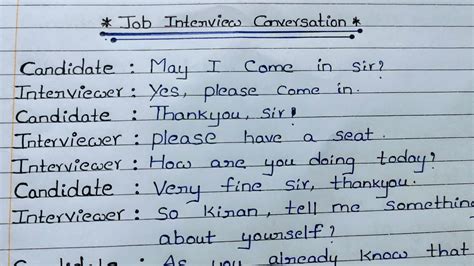 * Job Interview Conversation *
Candidate : May I Come in sir?
Interviewer : Yes, please come in.
Candidate : Thankyou, sir!
Interviewer : please have a seat.
Interviewer : How are you doing today?
Candidate : Very fine sir, thankyou.
Interviewer : so kiran, tell me something
about yourself?
Candidate : As you already know that